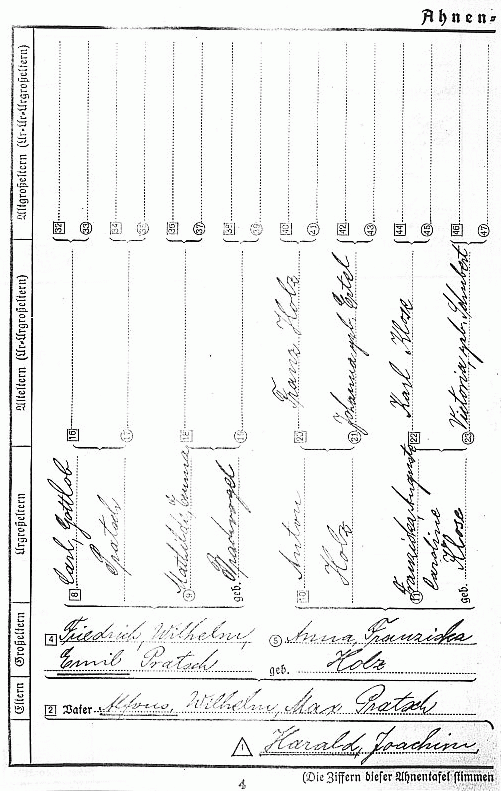 Ahnen=
Altgroßeltern (Ur-Ur-Urgroßeltern)
32
33
34
35
36
37
38
39
40
41
42
43
44
45
46
47
Alteltern (Ur-Urgroßeltern)
16
17
18
19
20 Franz Holz
21 Johanna geb. Ertel
22 Karl Klose
23 Victoria, geb. Schubert
Urgroßeltern
8 Carl, Gottlob
Pratsch
9 Mathilde, Emma
geb.
10 Anton
Holz
11 Franziska, Auguste
Caroline
geb. Klose
Großeltern
4 Friedrich, Wilhelm,
Emil Pratsch
5 Anna, Franziska
geb. Holz
Eltern
2 Vater Alfons, Wilhelm, Max Pratsch
1 Harald, Joachim
(Die Ziffern dieser Ahnentafel stimmen
4